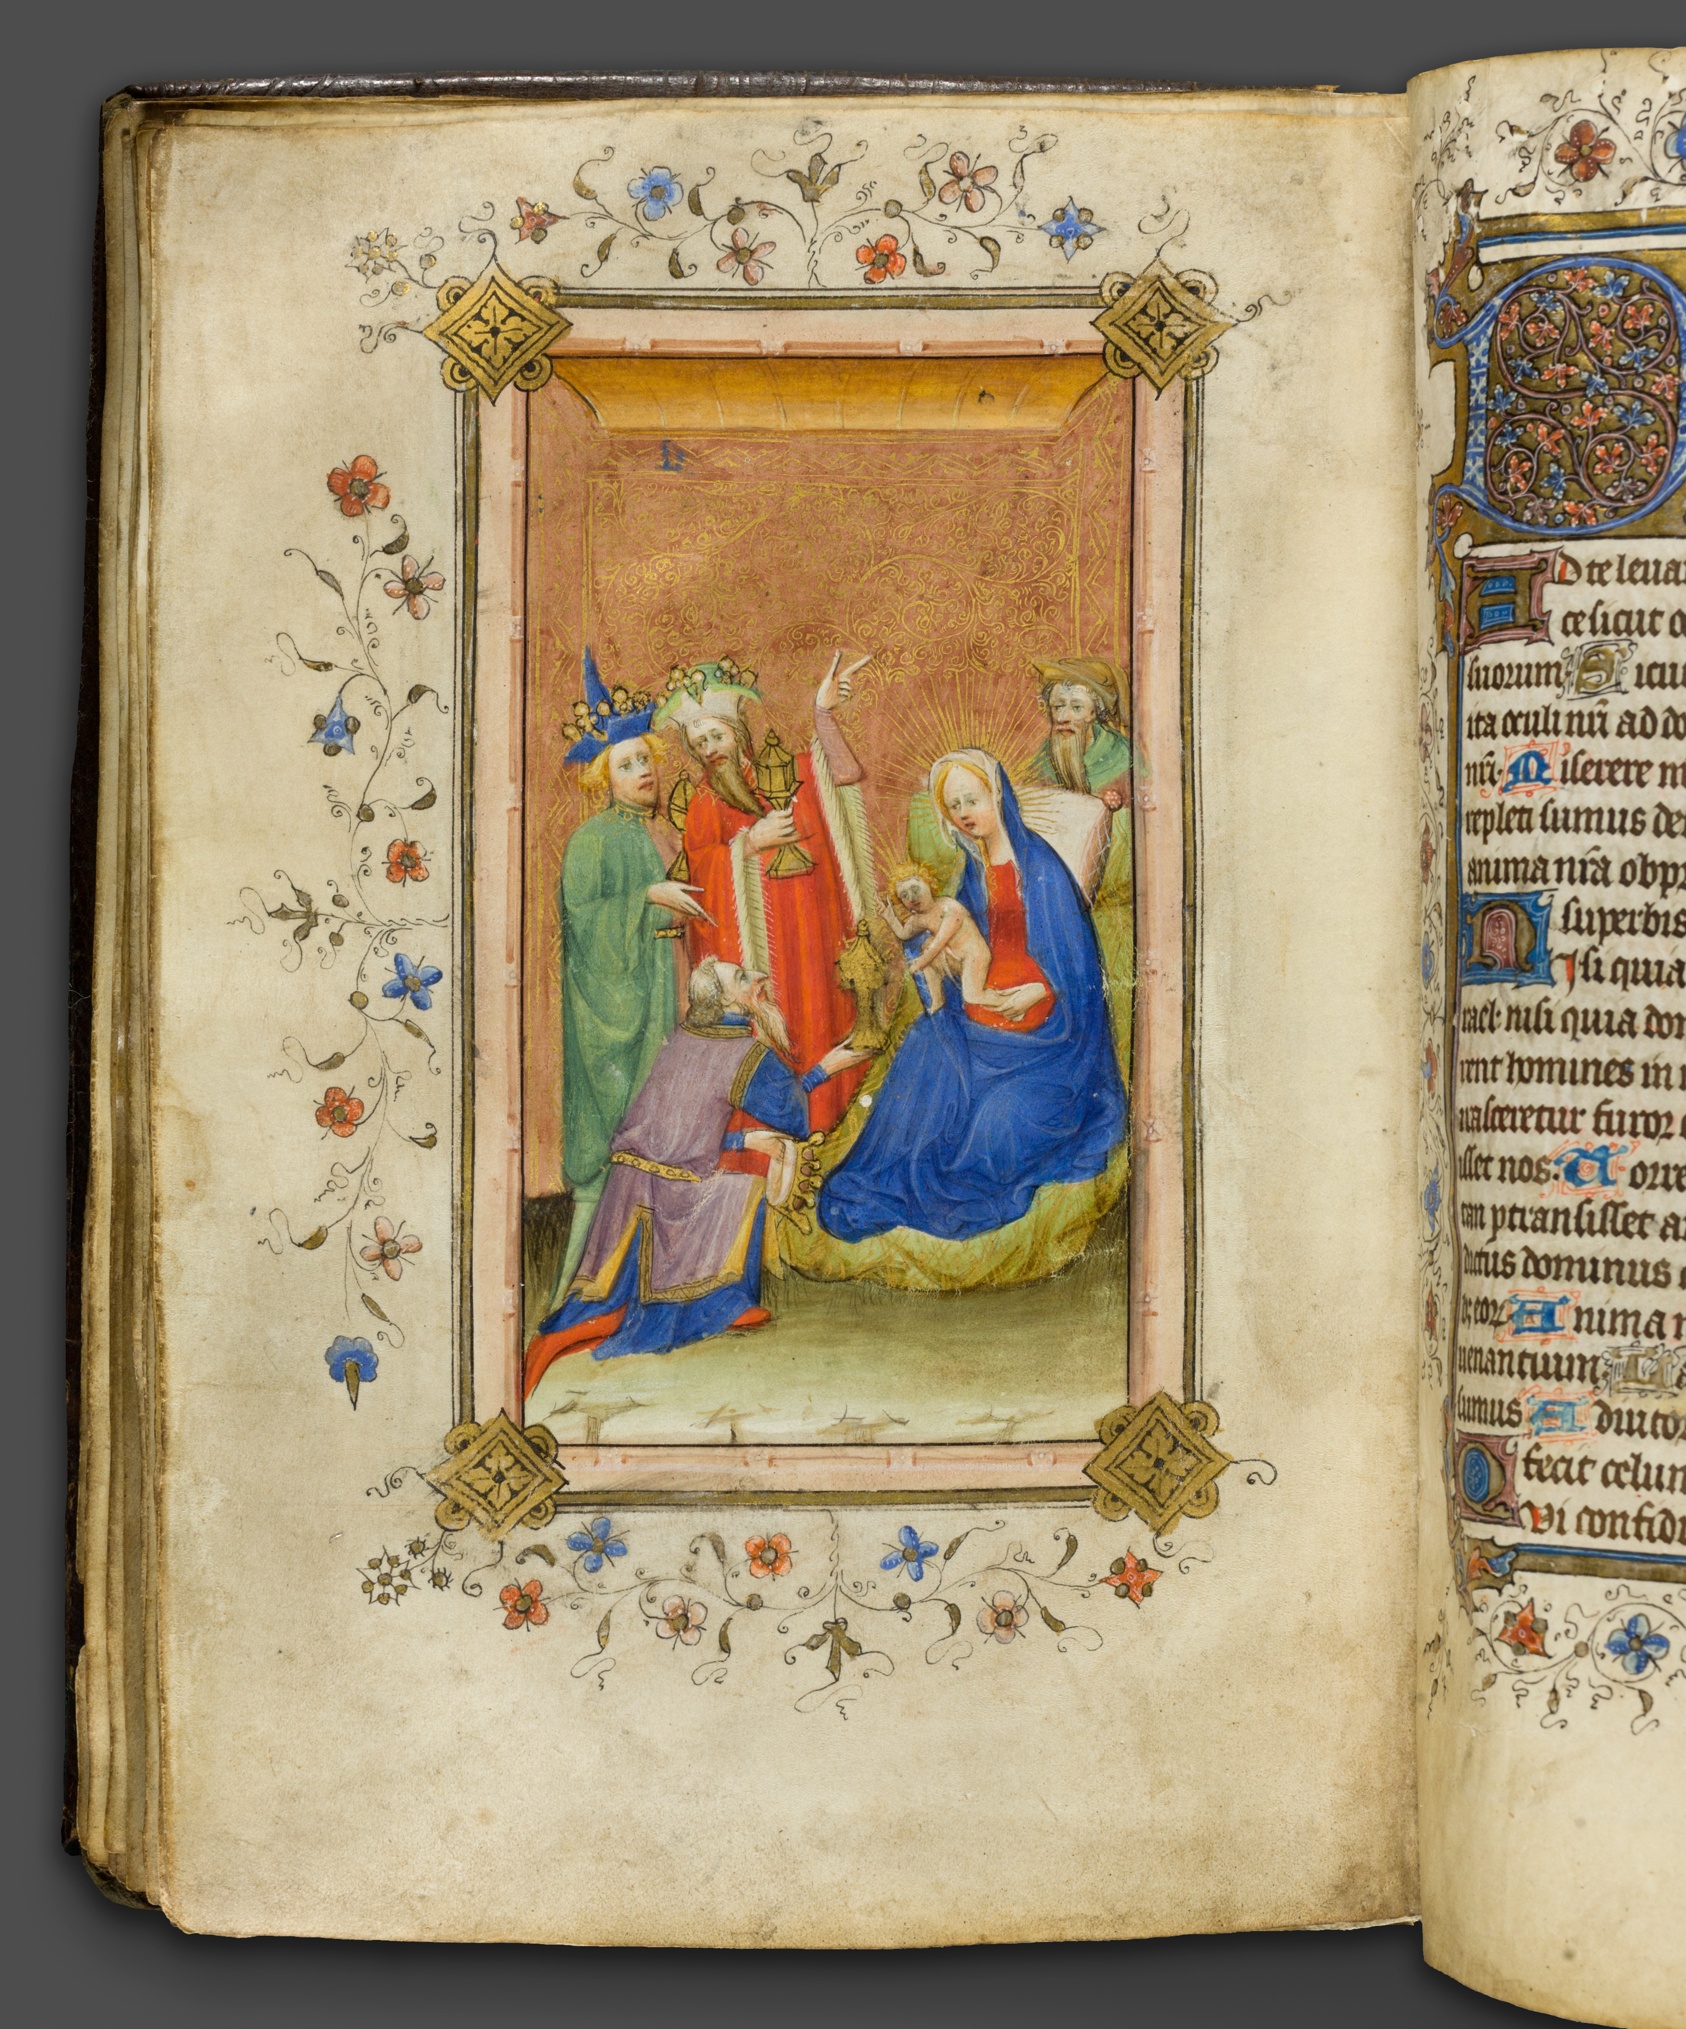 AD te leua
ce sicut o
suorum Sicu
ita oculi nr̃i ad do
nr̃i. Miserere m
repleti sumus de
anima nr̃a obpr
superbis
Nisi quia
rael: nisi quia dom
rent homines in
irasceretur furor e
isset nos. Torre
ptransisset a
dictus dominus
Anima n
uenantium La
sumus Adiutor
fecit celum
Qui confid